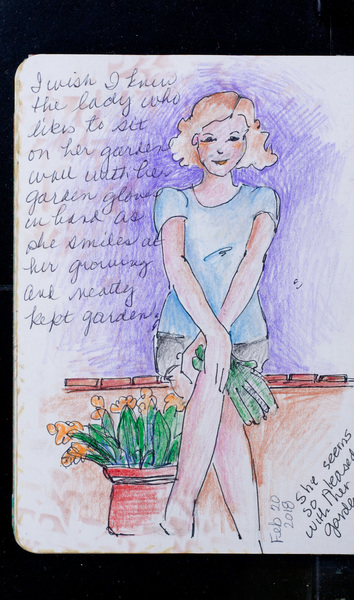 I wish I knew
the lady who
likes to sit
on her garden
wall with her
garden gloves
in hand as
she smiles at
her growing
and neatly
kept garden.
Feb 20
2018
She seems
so pleased
with her
garden